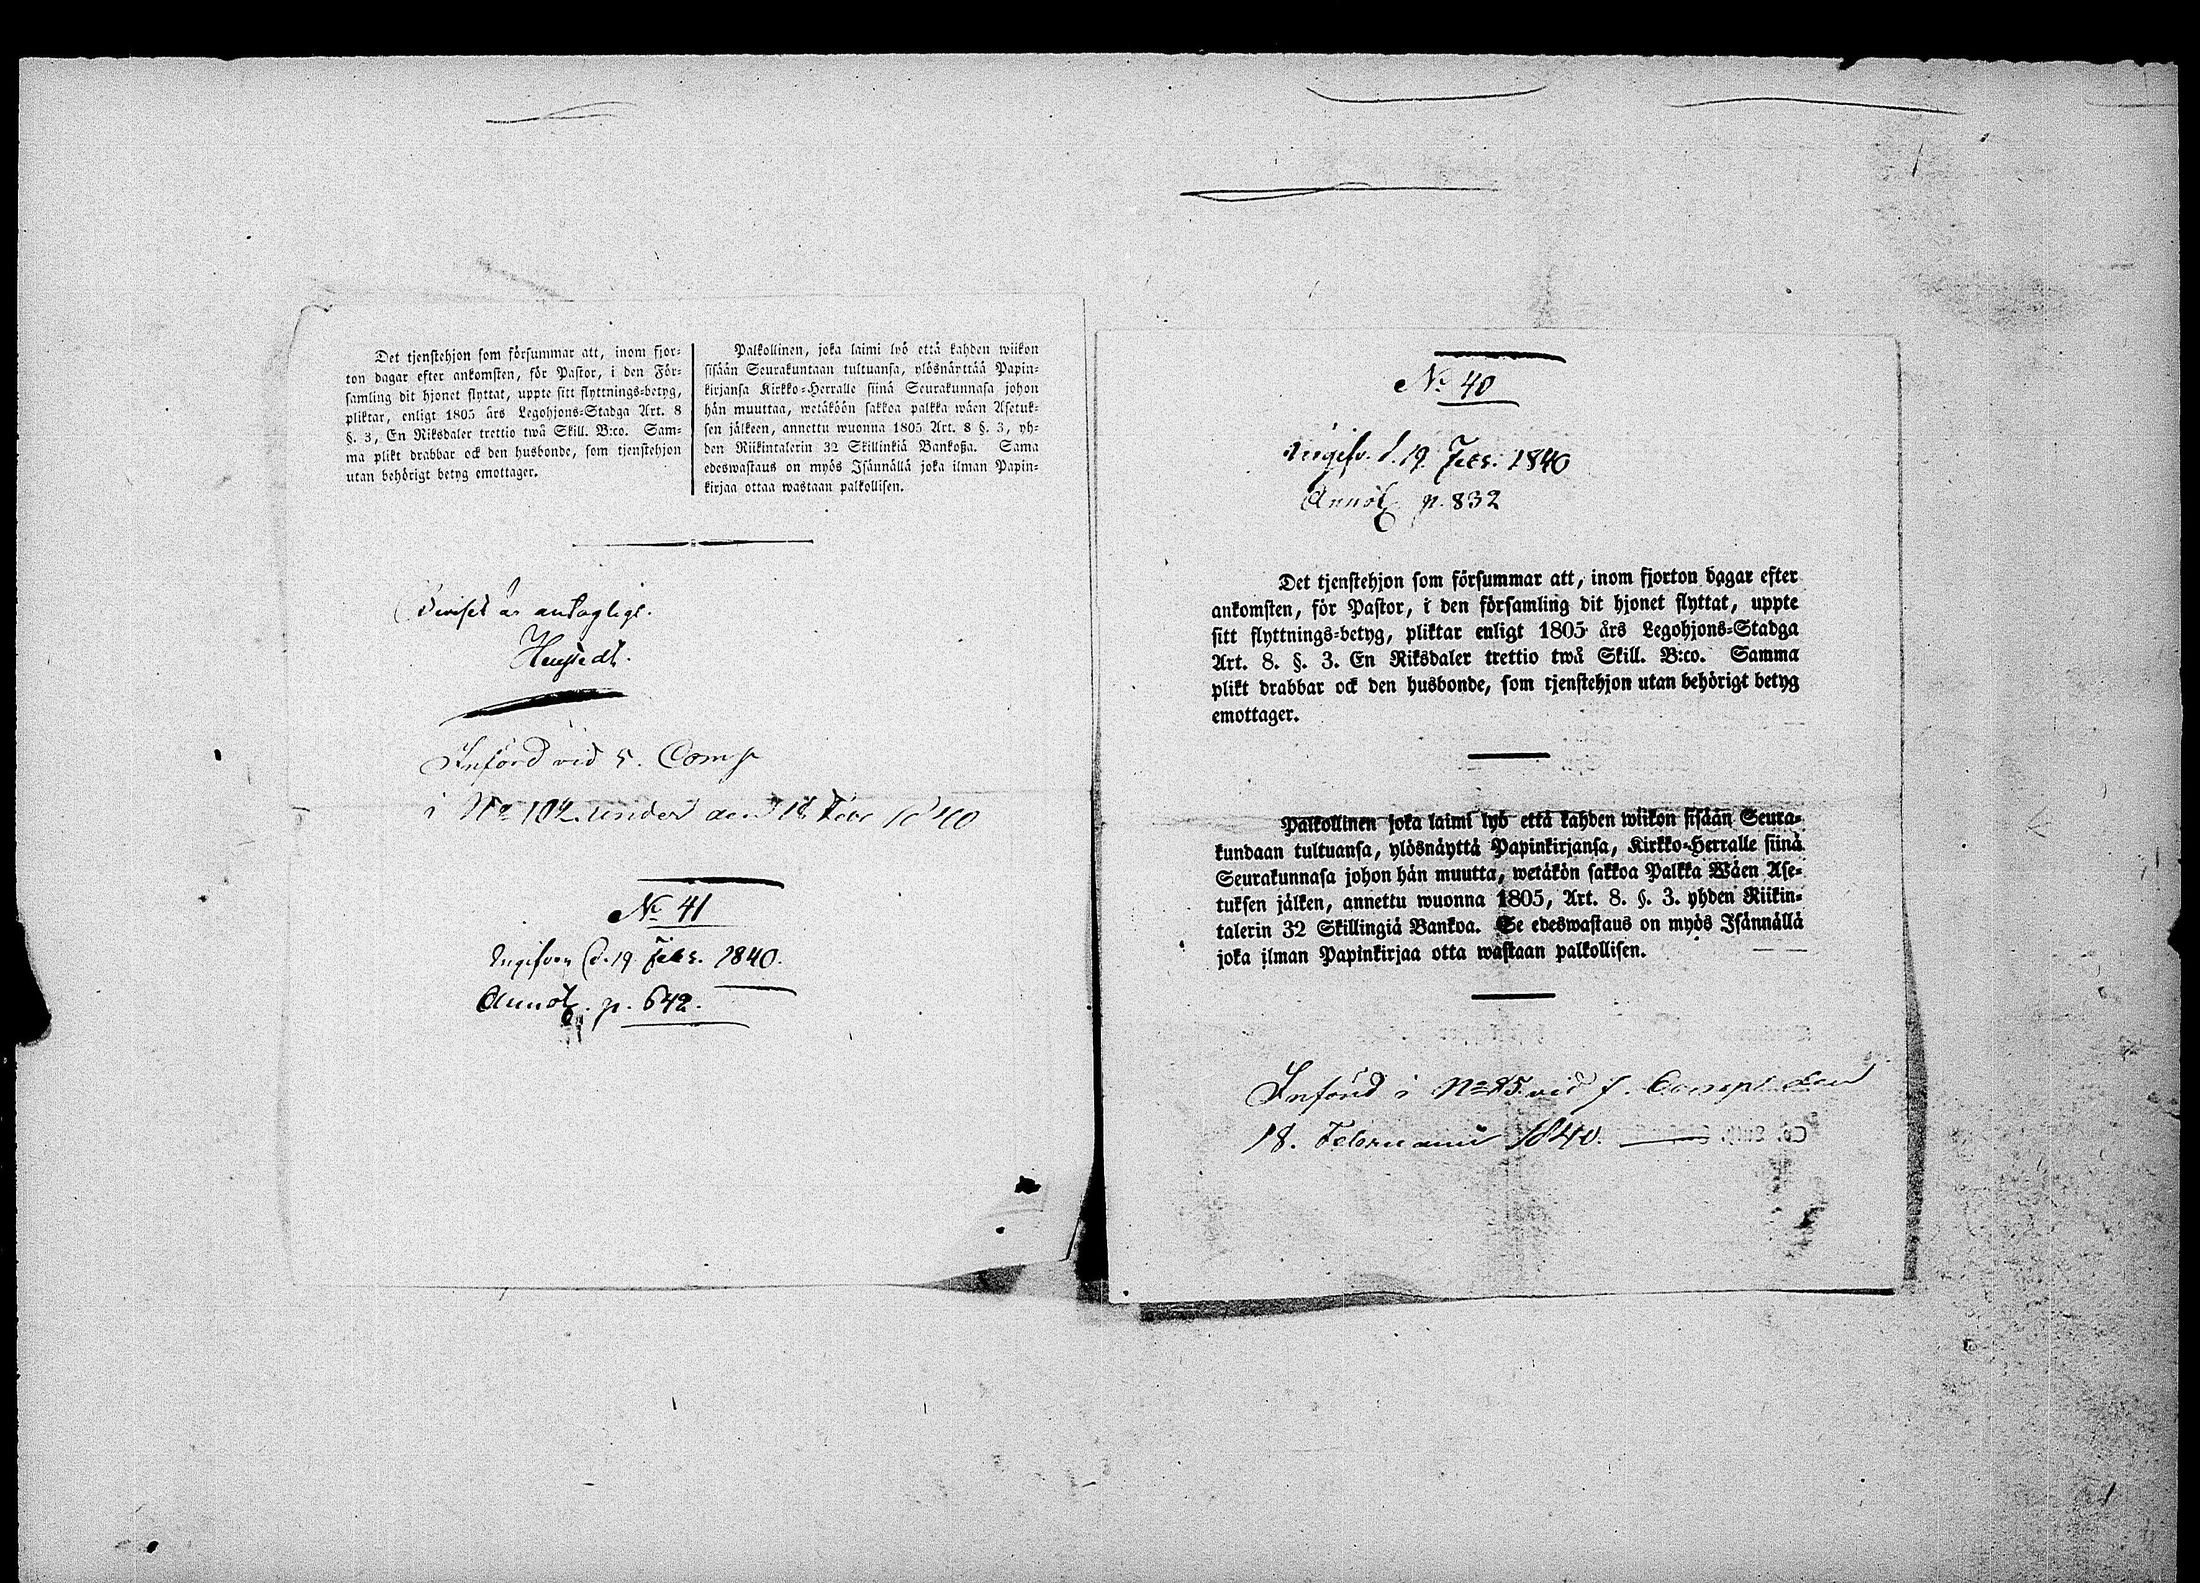 Det tjenstehjon som försummar att, inom fjor-
ton dagar efter ankomsten, för Pastor, i den För-
samling dit hjonet flyttat, uppte sitt flyttnings-betyg,
pliktar, enligt 1805 års Legohjons-Stadga Art. 8
§. 3, En Riksdaler trettio twå Skill. B:co. Sam-
ma plikt drabbar ock den husbonde, som tjenstehjon
utan behörigt betyg emottager.
Palkollinen, joka laimi lyö että kahden wiikon
sisään Seurakuntaan tultuansa, ylösnäyttää Papin-
kirjansa Kirkko-Herralle siinä Seurakunnasa johon
hän muuttaa, wetäköön sakkoa palkka wäen Asetuk-
sen jälkeen, annettu wuonna 1805 Art. 8 §. 3, yh-
den Riikintalerin 32 Skillinkiä Bankoßa. Sama
edeswastaus on myös Isännällä joka ilman Papin-
kirjaa ottaa wastaan palkollisen.
är antagligt.
Införd vid 5. Comp
i No 102 under den 18 Febr 1840
No 41
Ingifven d. 19 Febr. 1840.
Annot. p. 642.
No 40
Ingifv. d. 19. Febr. 1840
Annot. p. 832
Det tjenstehjon som försummar att, inom fjorton dagar efter
ankomsten, för Pastor, i den församling dit hjonet flyttat, uppte
sitt flyttnings-betyg, pliktar enligt 1805 års Legohjons-Stadga
Art. 8. §. 3. En Riksdaler trettio twå Skill. B:co. Samma
plikt drabbar ock den husbonde, som tjenstehjon utan behörigt betyg
emottager.
Palkollinen joka laimi lyö että kahden wiikon sisään Seura-
kundaan tultuansa, ylösnäyttä Papinkirjansa, Kirkko-Herralle siinä
Seurakunnasa johon hän muutta, wetäkön sakkoa Palkka Wäen Ase-
tuksen jälken, annettu wuonna 1805, Art. 8. §. 3. yhden Riikin-
talerin 32 Skillingiä Bankoa. Se edeswastaus on myös Isännällä
joka ilman Papinkirjaa otta wastaan palkollisen.
Införd i No 85 vid 1. Comp. den
18. Februarii 1840.